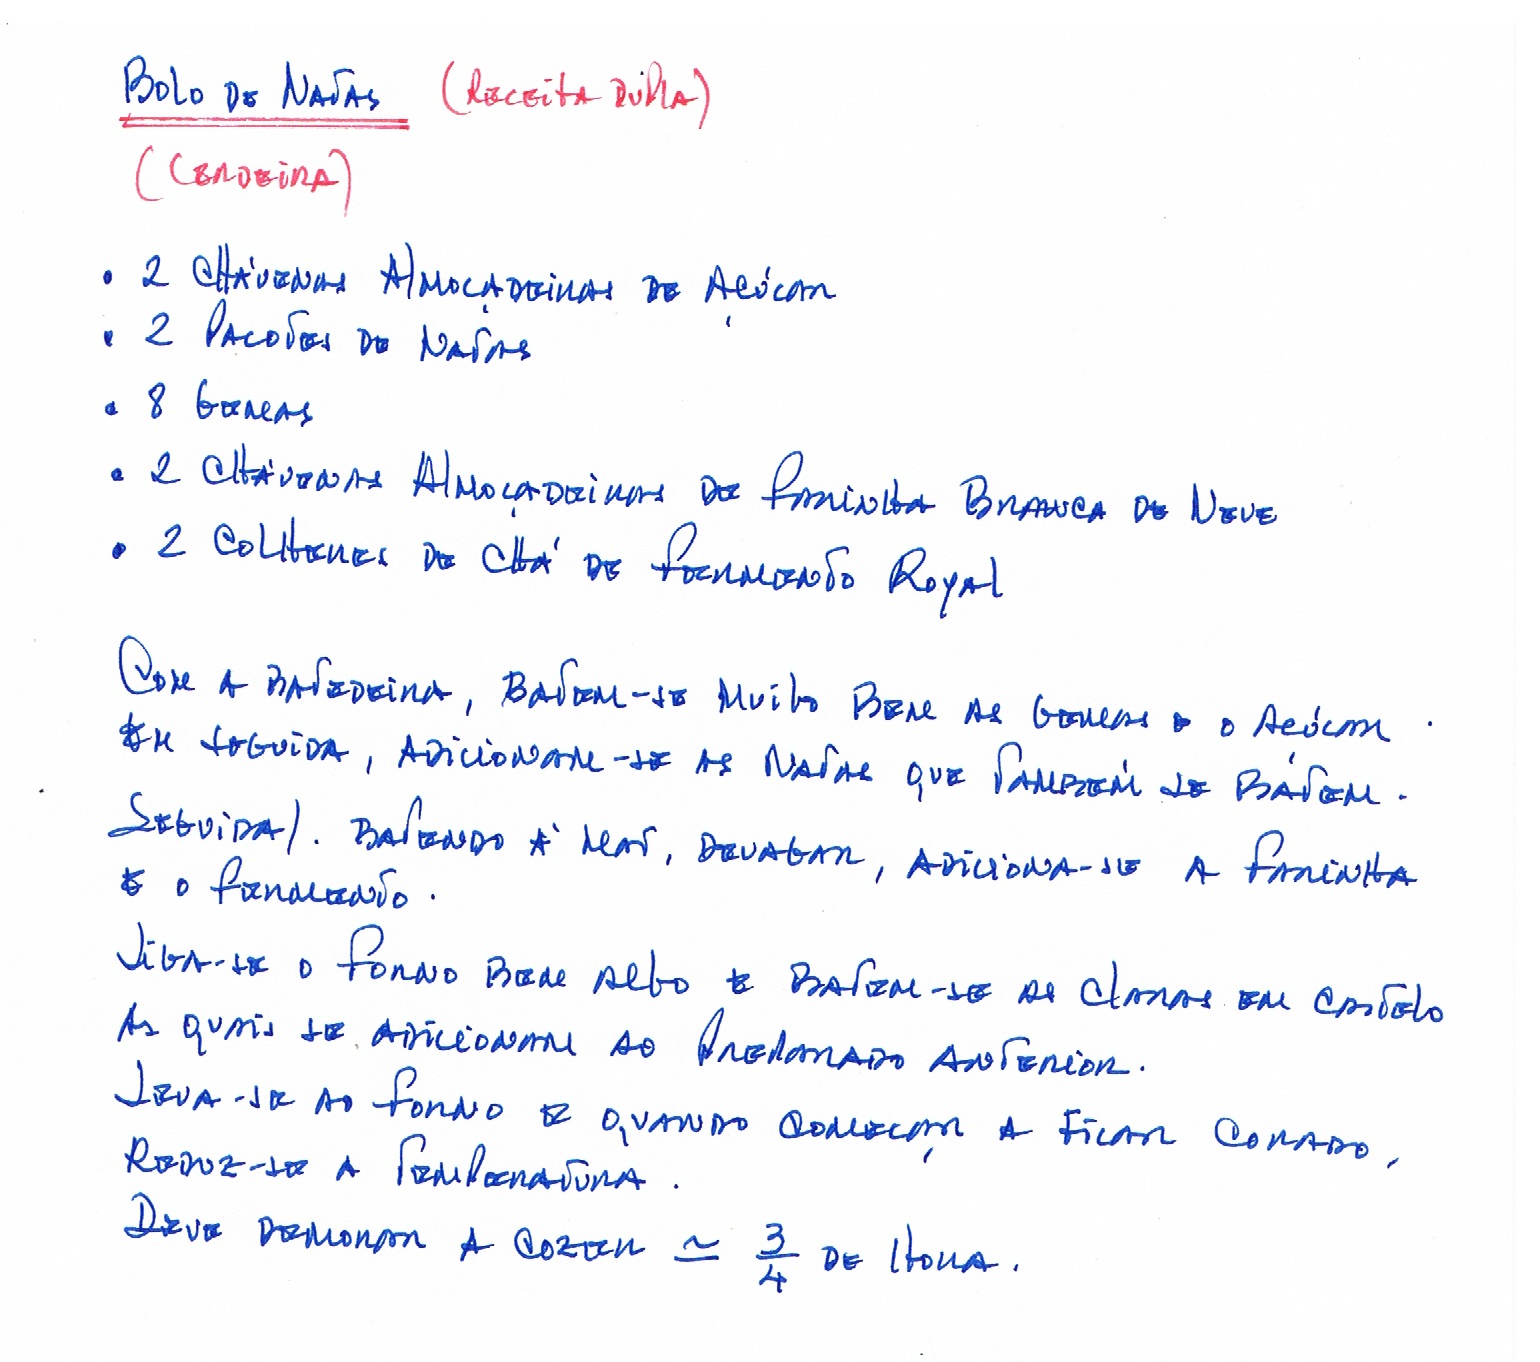 Bolo de Natas (Receita Dupla)
(Cerdeira)
• 2 Chávenas Almoçadeiras de Açúcar
• 2 Pacotes de Natas
• 8 Gemas
• 2 Chávenas Almoçadeiras de Farinha Branca de Neve
• 2 Colheres de Chá de Fermento Royal
Com a batedeira, batem-se muito bem as gemas e o açúcar.
Em seguida, adicionam-se as natas que também se bátem.
Seguida/. Batendo à mão, devagar, adiciona-se a farinha
e o fermento.
Liga-se o forno bem alto e batem-se as claras em castelo
as quais se adicionam ao preparado anterior.
Leva-se ao forno e quando começar a ficar corado,
reduz-se a temperatura.
Deve demorar a cozer ≃ 3/4 de hora.